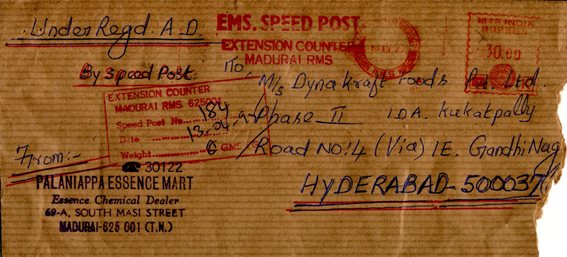 Under Regd. A.D.
By Speed Post.
EMS. SPEED POST
EXTENSION COUNTER
MADURAI RMS
INDIA
30.00
EXTENSION COUNTER
MADURAI RMS. 625001
Speed Post No. 184
Date 13
Weight 6 GMS
To
M/s Dynakraft Foods Pvt. Ltd.
Phase II I.D.A. Kukatpally
Road No: 4 (Via) I.E. Gandhi Nag
HYDERABAD-500037
From:-
30122
PALANIAPPA ESSENCE MART
Essence Chemical Dealer
69-A, SOUTH MASI STREET
MADURAI-625 001 (T.N.)